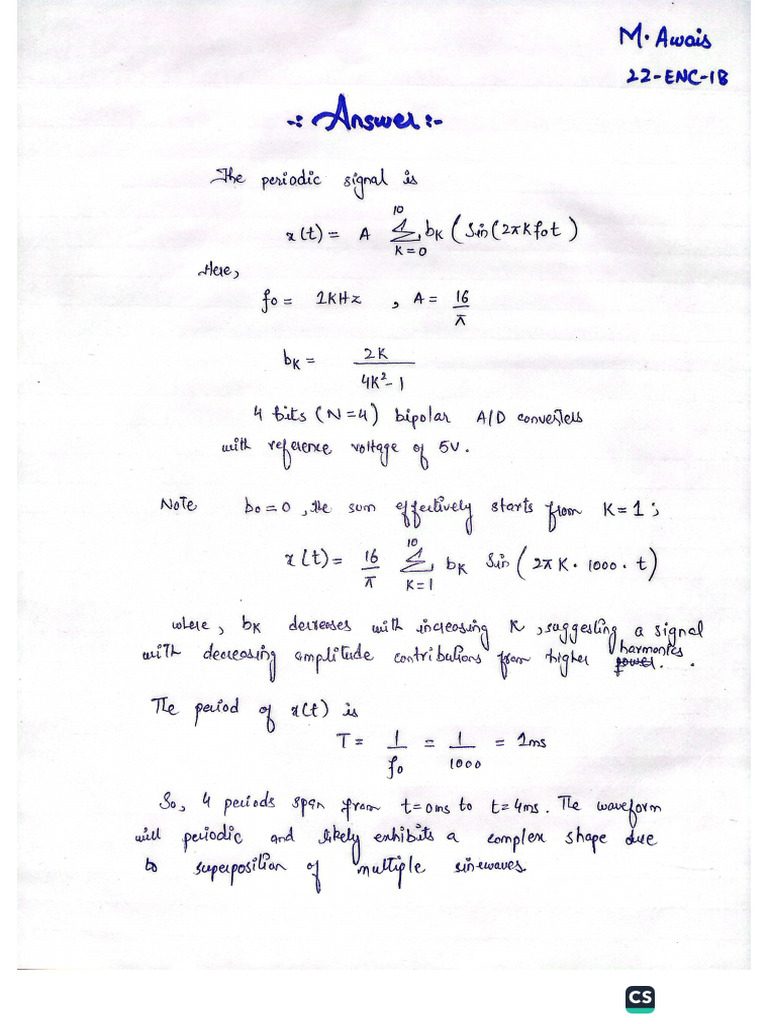 M. Awais
22-ENC-18
-: Answer :-
The periodic signal is
x(t) = A \sum_{K=0}^{10} b_K ( Sin(2πKf₀t )
Here,
f₀ = 1KHz , A = 16/π
b_K = 2K / 4K²-1
4 bits (N=4) bipolar A/D converters
with reference voltage of 5V.
Note b₀=0, the sum effectively starts from K=1;
x(t) = 16/π \sum_{K=1}^{10} b_K Sin( 2πK · 1000 · t )
where, b_K decreases with increasing K, suggesting a signal
with decreasing amplitude contributions from higher harmonics.
The period of x(t) is
T = 1/f₀ = 1/1000 = 1ms
So, 4 periods span from t=0ms to t=4ms. The waveform
will periodic and likely exhibits a complex shape due
to superposition of multiple sinewaves.
CS